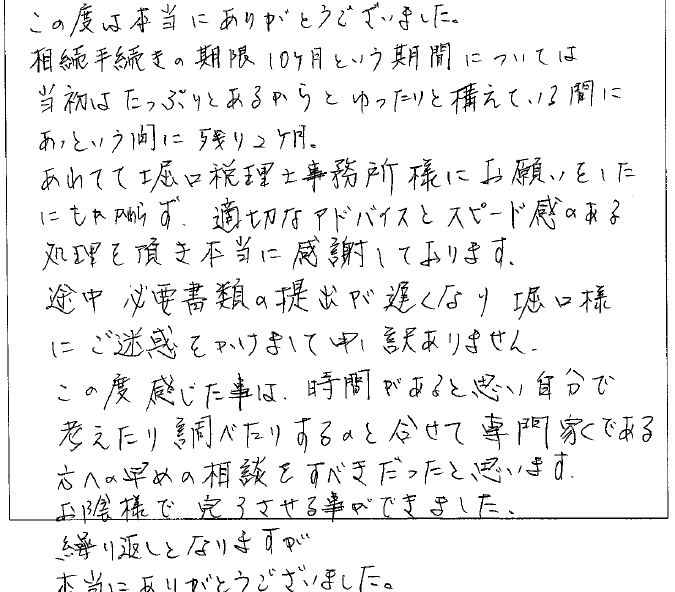 この度は本当にありがとうございました。
相続手続きの期限10ケ月という期間については
当初はたっぷりとあるからとゆったりと構えている間に
あっという間に残り2ケ月。
あわてて堀口税理士事務所様にお願いをした
にもかかわらず、適切なアドバイスとスピード感のある
処理を頂き本当に感謝しております。
途中必要書類の提出が遅くなり堀口様
にご迷惑をかけまして申し訳ありません。
この度感じた事は、時間があると思い自分で
考えたり調べたりするのと合せて専門家である
方への早めの相談をすべきだったと思います。
お陰様で完了させる事ができました。
繰り返しとなりますが
本当にありがとうございました。